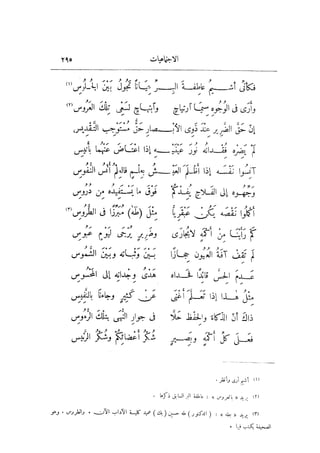 الاجتماعيات ٢٩٥
فكأنّى أشــيم عاطفــة البــر عيانًا تجول بين الجلوس (١)
وأرى فى الوجوه سيما ارتياح وابتهاج لسعى تلك العروس (٢)
إن حق الضرير عند ذوى الأبـ ـصار حق مستوجب التقديس
لم يضره فقدانه نور عينيه إذا اعتاض عنهما بأنيس
آنسوا نفسه إذا أظلم العيـ ـش بعلم فالعلم أنس النفوس
وجّهوه إلى الفلاح يفدكم فوق ما يستفيده من دروس
أكملوا نقصه يكن عبقريًّا مثل (طه) مبرزًا فى الطروس (٣)
كم رأينا من أكمه لا يجارى وضرير يرجى ليوم عبوس
لم تقف آفة العيون حجازًا بين وثباته وبين الشموس
عــدم الحس قائدًا فحــداه هدى وجدانه إلى المحسوس
مثل هــذا إذا تعــلم أغنى عن كثير وجاءنا بالنفيس
ذاك أن الذكاء والحفظ حلّا فى جوار النهى بتلك الرءوس
فعــلى كل أكمه وبصــير شكر أعضائكم وشكر الرئيس
(١) أشيم أرى وأنظر .
(٢) يريد « بالعروس » : عاطفة البر السابق ذكرها .
(٣) يريد « بطه » : (الدكتور) طه حسين (بك) عميد كلية الآداب الآن . والطروس ، وهو
الصحيفة يكتب فيها .